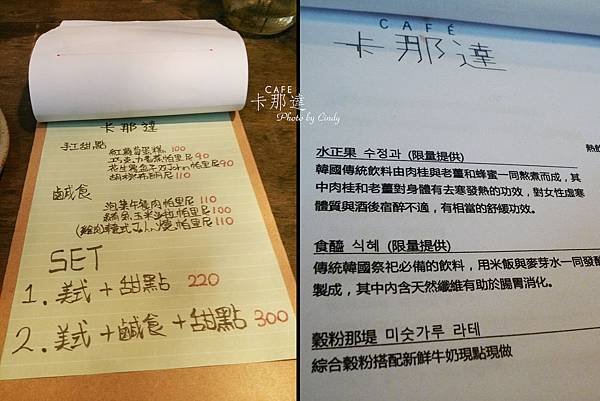 卡那達
手工甜點
紅蘿蔔蛋糕 100
巧克力香蕉帕里尼 90
花生 帕里尼 90
110
鹹食
午餐肉帕里尼 110
鮪魚玉米 帕里尼 100
110
SET
1. 美式 + 甜點 220
2. 美式 + 鹹食 + 甜點 300
CAFE
卡那達
Photo by Cindy
CAFÉ
卡那達
熱飲
水正果 수정과 (限量提供)
韓國傳統飲料由肉桂與老薑和蜂蜜一同熬煮而成，其
中肉桂和老薑對身體有去寒發熱的功效，對女性虛寒
體質與酒後宿醉不適，有相當的舒緩功效。
食醯 식혜 (限量提供)
傳統韓國祭祀必備的飲料，用米飯與麥芽水一同發酵
製成，其中內含天然纖維有助於腸胃消化。
穀粉那堤 미숫가루 라테
綜合穀粉搭配新鮮牛奶現點現做